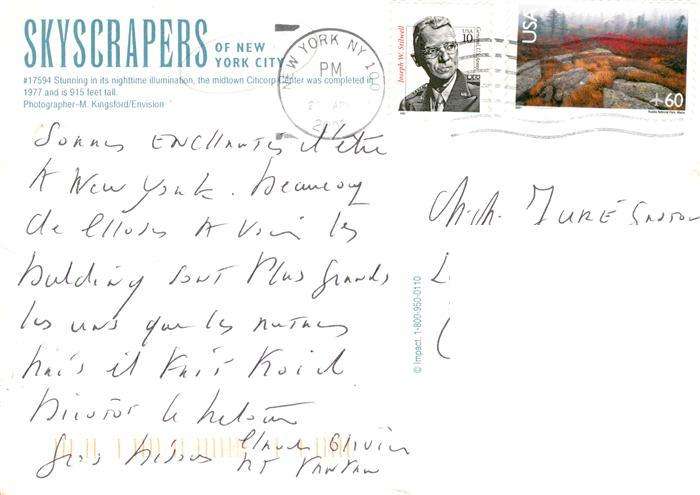 SKYSCRAPERS OF NEW YORK CITY
#17594 Stunning in its nighttime illumination, the midtown Citicorp Center was completed in
1977 and is 915 feet tall.
Photographer-M. Kingsford/Envision
NEW YORK NY 100
PM
Joseph W. Stilwell
USA
10
USA
60
Sommes ENCHANTES d'etre
A New York. Beaucoup
de choses A voir les
building sont plus grands
les uns que les autres
mais il fait froid
Bientot le retour
Gros bisous Claude Olivier
ET
M.M. JURE Gaston
© Impact 1-800-950-0110